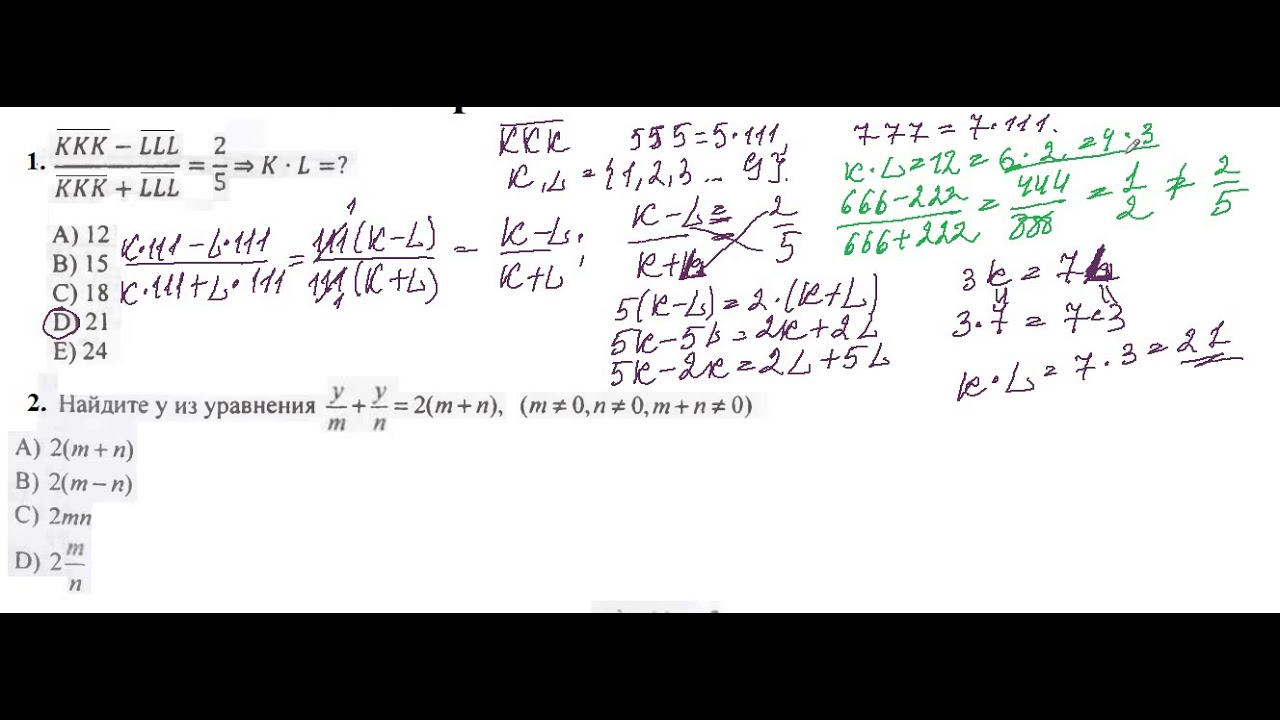 1. (KKK − LLL)/(KKK + LLL) = 2/5 ⇒ K · L =?
A) 12
B) 15
C) 18
D) 21
E) 24
K·111 − L·111 / K·111 + L·111 = 111(K−L) / 111(K+L) = K−L / K+L ;
KKK 555 = 5·111, 777 = 7·111.
K, L = {1, 2, 3 ... 9}.
K − L / K + L = 2/5
5(K−L) = 2·(K+L)
5K − 5L = 2K + 2L
5K − 2K = 2L + 5L
K·L = 12 = 6·2 = 4·3
666 − 222 / 666 + 222 = 444 / 888 = 1/2 ≠ 2/5
3K = 7L
3·7 = 7·3
K·L = 7·3 = 21
2. Найдите y из уравнения y/m + y/n = 2(m + n), (m ≠ 0, n ≠ 0, m + n ≠ 0)
A) 2(m + n)
B) 2(m − n)
C) 2mn
D) 2 m/n